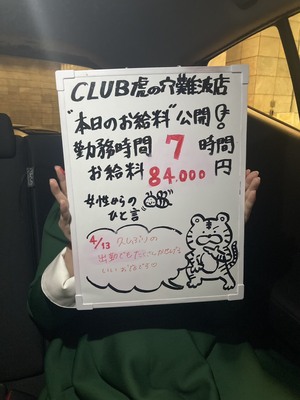 CLUB虎の穴難波店
"本日のお給料"公開!
勤務時間 7 時間
お給料 84.000 円
女性からの
ひと言
4/13 久しぶりの
出勤でもたくさんかせげて
いい